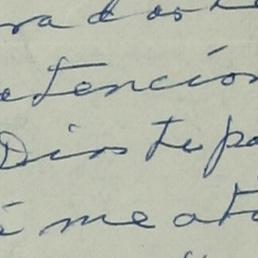 rados
atención
Dios te pa
me ata